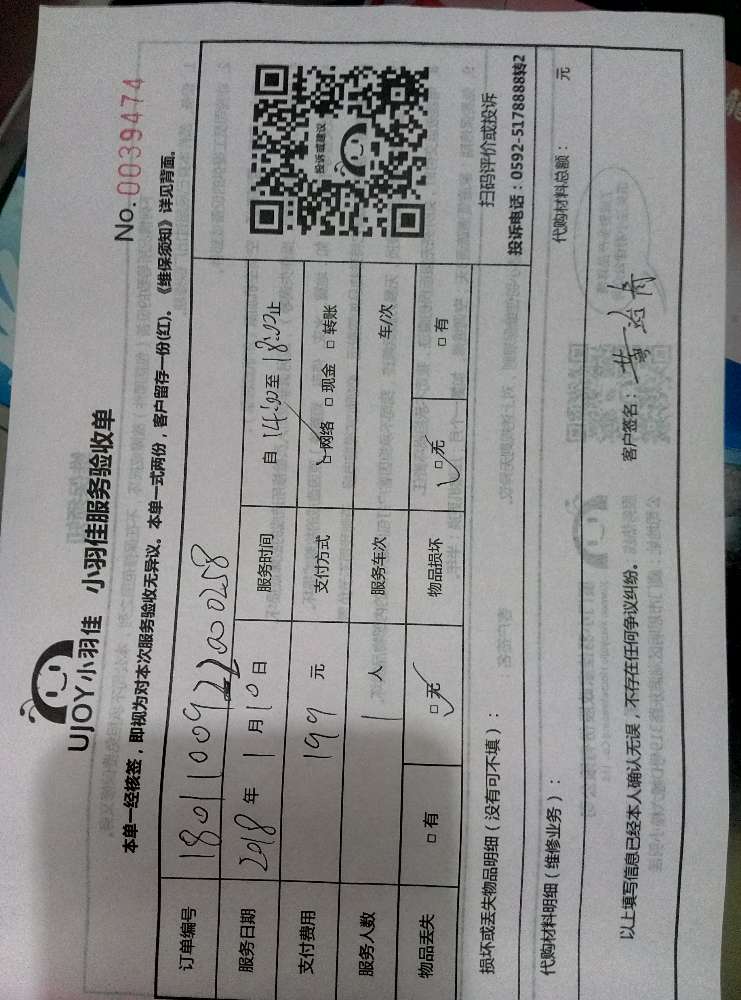 UJOY小羽佳 小羽佳服务验收单
No.0039474
本单一经核签，即视为对本次服务验收无异议。本单一式两份，客户留存一份(红)。《维保须知》详见背面。
订单编号 18011009222000258
服务日期 2018 年 1 月 10 日 服务时间 自 14:00 至 18:00 止
支付费用 199 元 支付方式 ☑网络 □现金 □转账
服务人数 1 人 服务车次 车/次
物品丢失 □有 ☑无 物品损坏 ☑无 □有
投诉或建议
扫码评价或投诉
投诉电话：0592-5178888转2
损坏或丢失物品明细（没有可不填）：
代购材料明细（维修业务）： 代购材料总额： 元
以上填写信息已经本人确认无误，不存在任何争议纠纷。 客户签名：